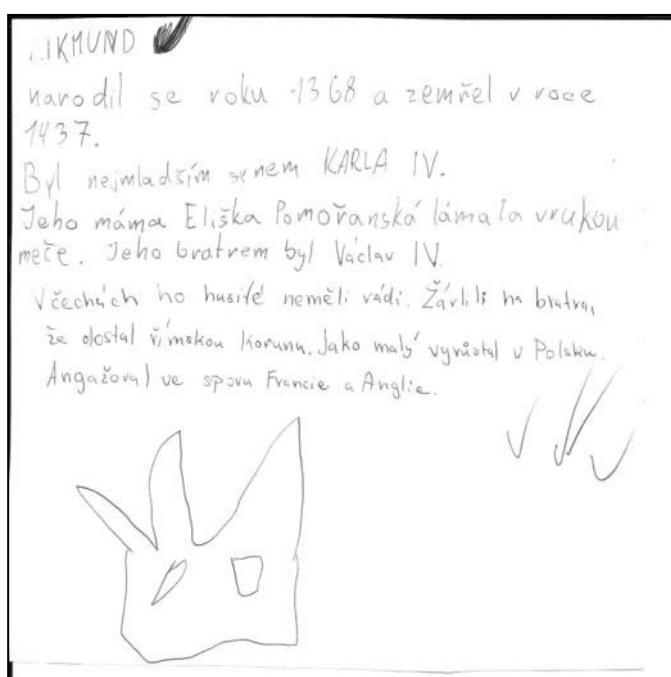 ZIKMUND
narodil se roku 1368 a zemřel v roce
1437.
Byl nejmladším synem KARLA IV.
Jeho máma Eliška Pomořanská lámala vrukou
meče. Jeho bratrem byl Václav IV.
V čechách ho husité neměli rádi. Žárlili na bratra,
že dostal římskou korunu. Jako malý vyrůstal v Polsku.
Angažoval ve sporu Francie a Anglie.